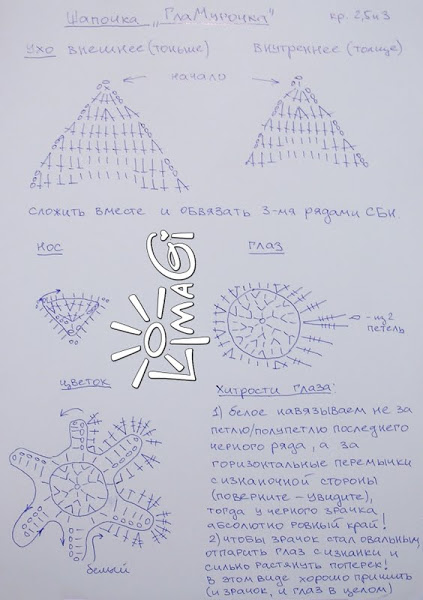 Шапочка „ГлаМурочка" кр. 2,5 и 3
Ухо внешнее (тоньше) внутреннее (толще)
начало
сложить вместе и обвязать 3-мя рядами СБН.
Нос Глаз
- из 2
петель
LiMAGi
цветок
белый
Хитрости глаза:
1) белое навязываем не за
петлю/полупетлю последнего
черного ряда, а за
горизонтальные перемычки
с изнаночной стороны
(поверните - увидите),
тогда у черного зрачка
абсолютно ровный край!
2) чтобы зрачок стал овальным,
отпарить глаз с изнанки и
сильно растянуть поперек!
в этом виде хорошо пришить
(и зрачок, и глаз в целом)